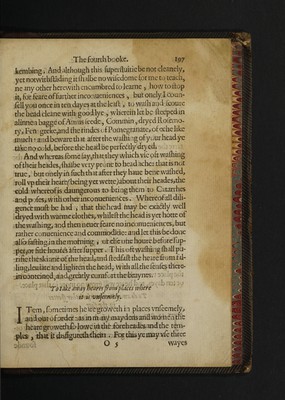 The fourth booke. 197
kembing. And although this superfluitie be not cleanely,
yet notwithstãding it shalbe no wisedome for me to teach,
ne any other herewith encombred to learne, how to stop
it, for feare of further inconueniences, but onely I coun-
sell you once in ten dayes at the least, to wash and scoure
the head cleane with good lye, wherein let be steeped in
almnes a bagge of Annis seede, Commin, dryed Rosema-
ry, Fenegreeke, and the rindes of Pomegranate, or oche like
much: and beware that after the washing of your head ye
take no cold, before the head be perfectly dryed.
And whereas some say, that they which vse oft washing
of their heades, shalbe very prone to head acher that is not
true, but onely in such that after they haue bene washed,
roll vp their heare (being yet wette) about their heades, the
cold whereof is dangerous to bring them to Catarrhes
and poses, with other inconueniences. Wherefore all dili-
gence must be had, that the head may be quickly well
dryed with warme clothes, whilest the head is yet hotte of
the washing, and then incure no inconueniences, but
rather conuenience and commoditie: and let this be done
also fasting in the morning, or else one houre before sup-
per, or fiue houres after supper. This oft washing shall pu-
rifie the skinne of the head, and stedfast the heare from fal-
ding, leuitate and lighten the head, with all the senses there-
into conteined, and greatly comfort the brayne.
To take away heares from places where
it is vnseemely.
ITem, sometimes heare groweth in places vnseemely,
and out of order: as in many maydens and women the
heare groweth so lowe in the foreheades and the tem-
ples, that it disfigureth them. For this ye may vse three
O 3 wayes